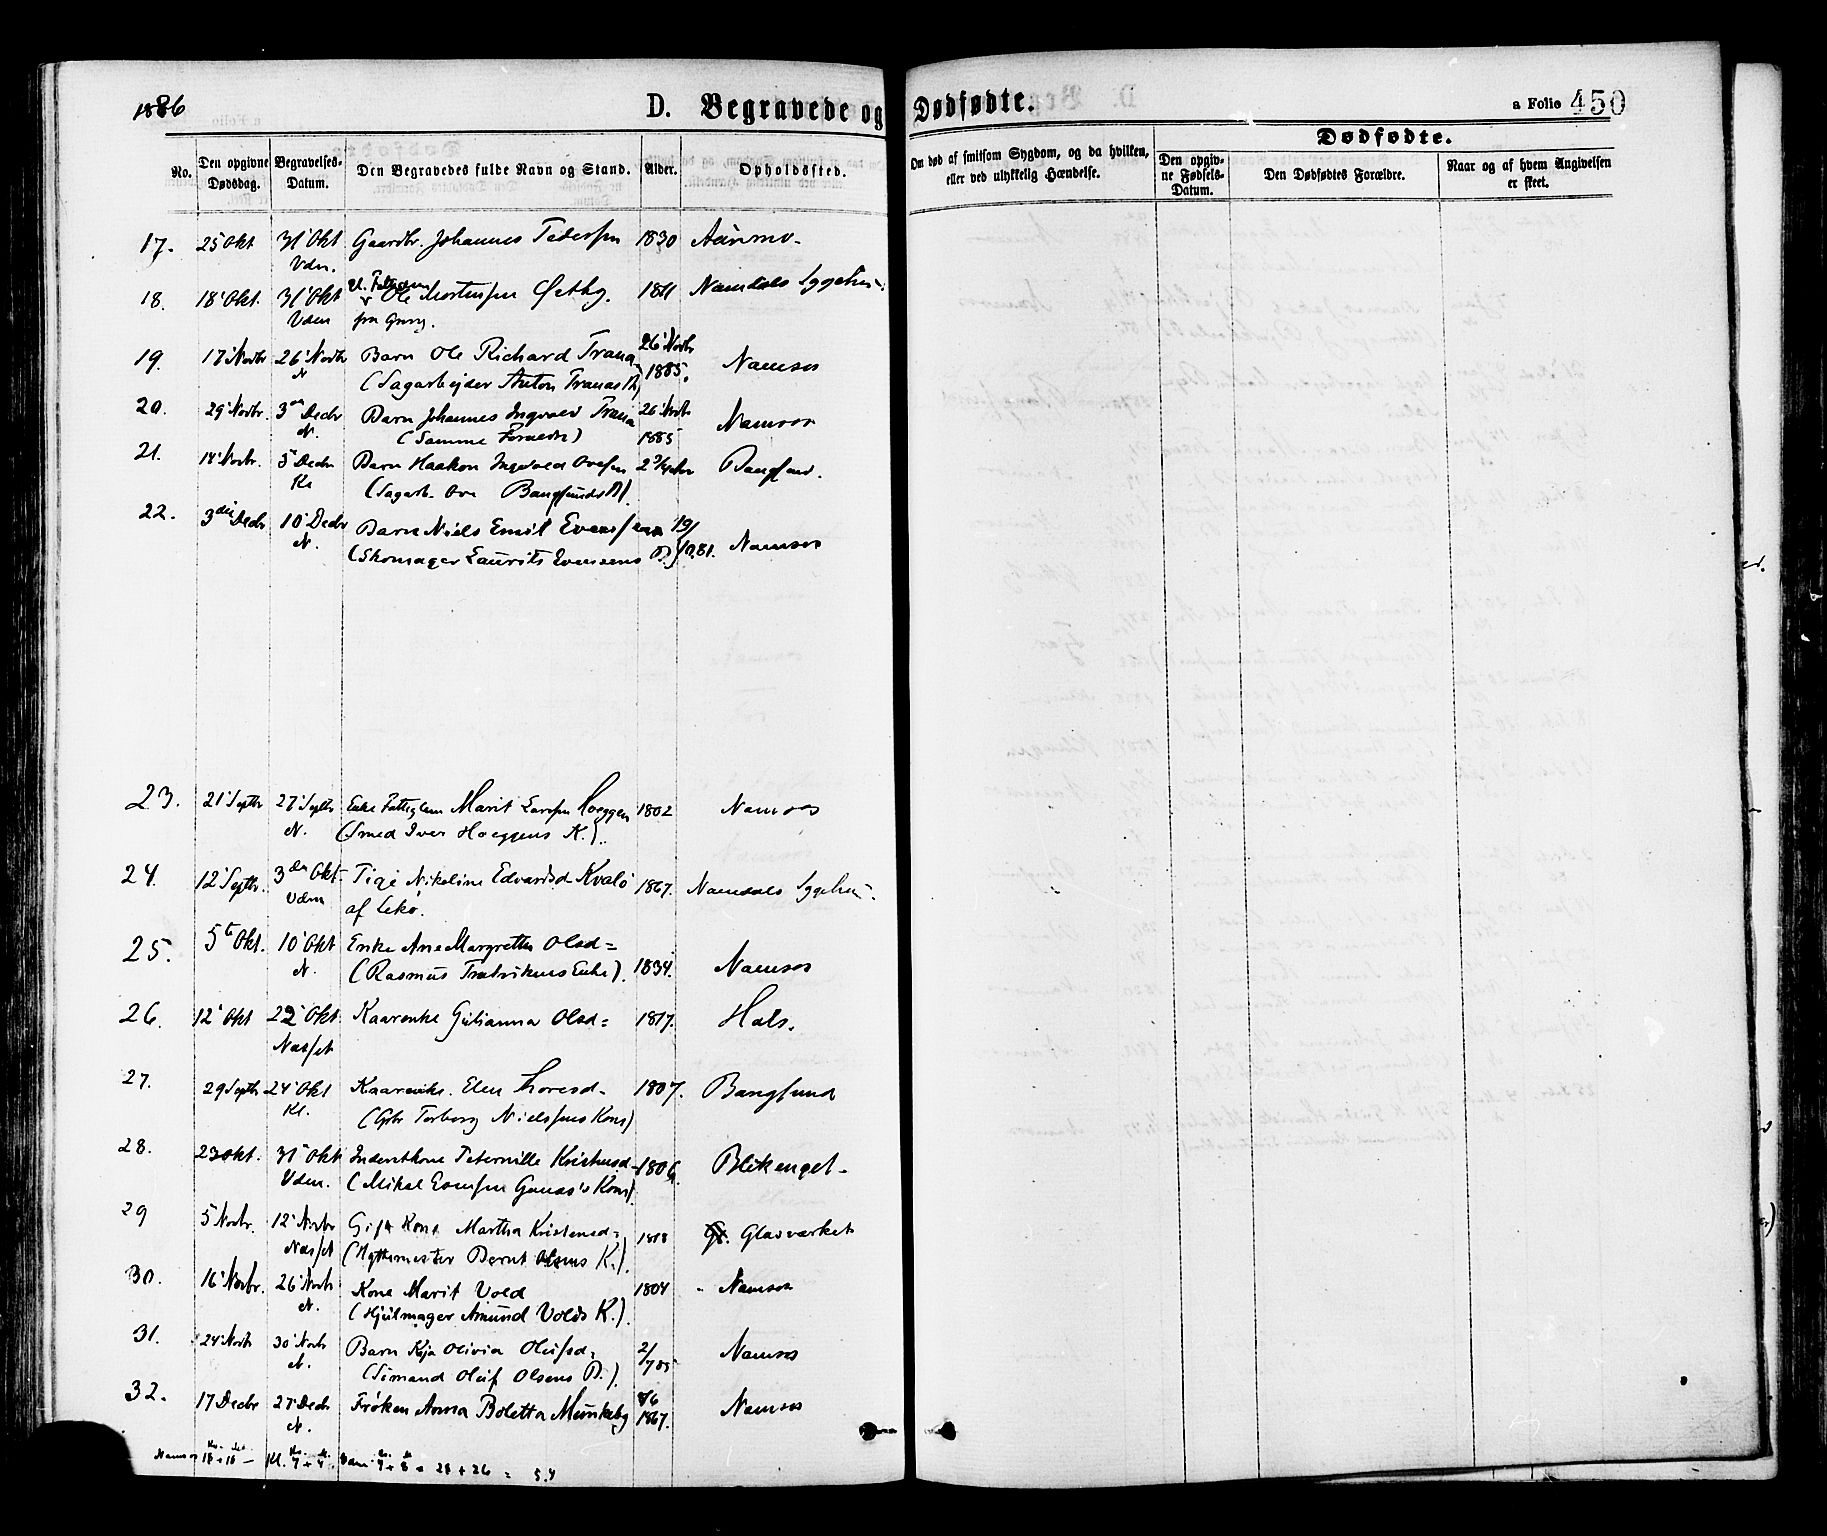 1886
D. Begravede og Dødfødte.
a Folio 450
No.
Den opgivne Dødsdag.
Begravelses-Datum.
Den Begravedes fulde Navn og Stand.
Alder.
Opholdssted.
Om død af smitsom Sygdom, og da hvilken, eller ved ulykkelig Hændelse.
Dødfødte.
Den opgivne Fødsels-Datum.
Den Dødfødtes Forældre.
Naar og af hvem Angivelsen er skeet.
17. 25' Okt 31' Okt Gaardbr. Johannes Pedersen 1830
Vdn.
18. 18' Okt. 31' Okt Ole Mortensen 1811 Namdals Sygehus
Vdn fra
19. 17' Novbr 26' Novbr Barn Ole Richard Trana 26' Novbr 1885. Namsos
N (Sagarbejder Anton Tranas B)
20. 29' Novbr. 3die Decbr Barn Johannes Ingvald Trana 26' Novbr 1885 Namsos
N. (Samme Forældre)
21. 18' Novbr. 5' Decbr Barn Haakon Ingvald Ovesen 2 3/4 Bangsund.
Kl (Sagarb. Ove Bangsunds B).
22. 3die Decbr 10' Decbr Barn Niels Emil Evensen 19/10.81. Namsos
N. (Skomager Laurits Evensens B.)
23. 21' Septbr 27' Septbr Enke Marit Larsen Hoeggen 1802 Namsos
N. (Smed Iver Hoeggens K.).
24. 12' Septbr. 3die Okt. Pige Nikoline Edvardsd Kvalø 1867. Namdals Sygehus.
Vdn af Lekø.
25. 5t Okt. 10' Okt Enke Ane Margrethe Olsd=
N. (Rasmus Enke). 1834. Namsos
26. 12' Okt 22' Okt. Kaarenke Gulianna Olsd= 1817. Hals.
27. 29 Septbr 24' Okt Elen Thoresd- 1807. Bangsund
Kl. (Gbr Torberg Nielsens Kone)
28. 23 Okt. 31' Okt Inderstkone Peternille Kristensd- 1806. Blikenget-
Vdn. (Mikal Evensen Kone)
29 5' Novbr. 12' Novbr Gift Kone Martha Kristensd= 1818 Glasværket
(Hyttemester Bernt Olsens K.).
30. 16' Novbr. 26' Novbr Kone Marit Vold 1804 - Namsos
N. (Hjulmager Amund Volds K.).
31. 24' Novbr 30' Novbr Barn Kaja Olivia Olufsd= 2/7 85 Namsos
N. (Sømand Oluf Olsens B.).
32. 17 Decbr 27' Decbr Frøken Anna Boletta Munkeby 1867. Namsos
N.
= 54